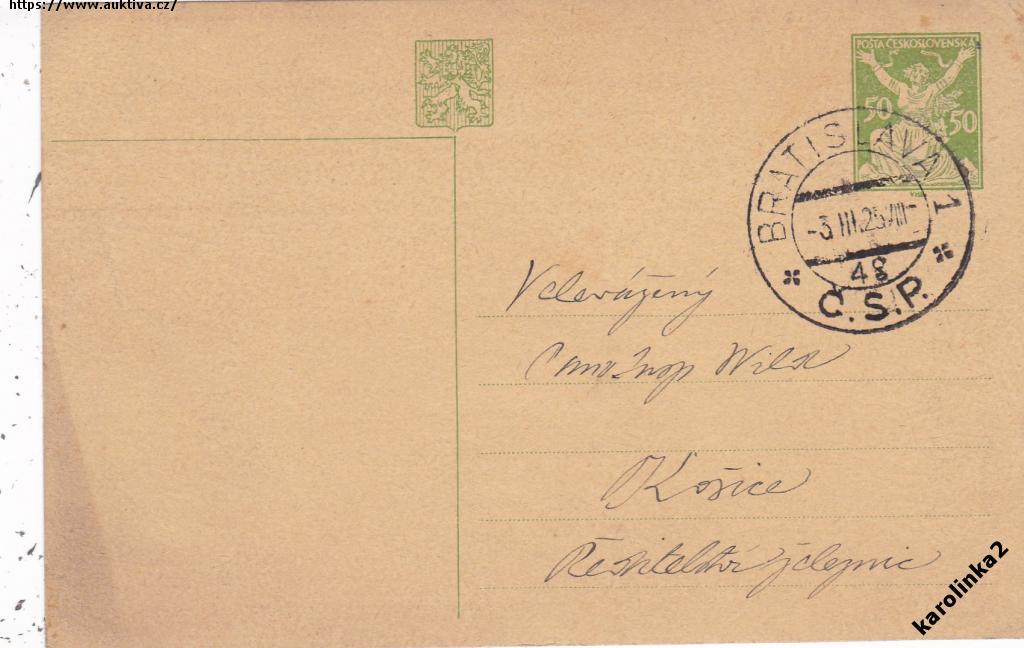 https://www.auktiva.cz/
POŠTA ČESKOSLOVENSKÁ
50 50
BRATISLAVA 1
-3.III.25.VIII-
4g
Č.S.P.
Velevážený
Wild
Košice
Ředitelství železnic
karolinka2